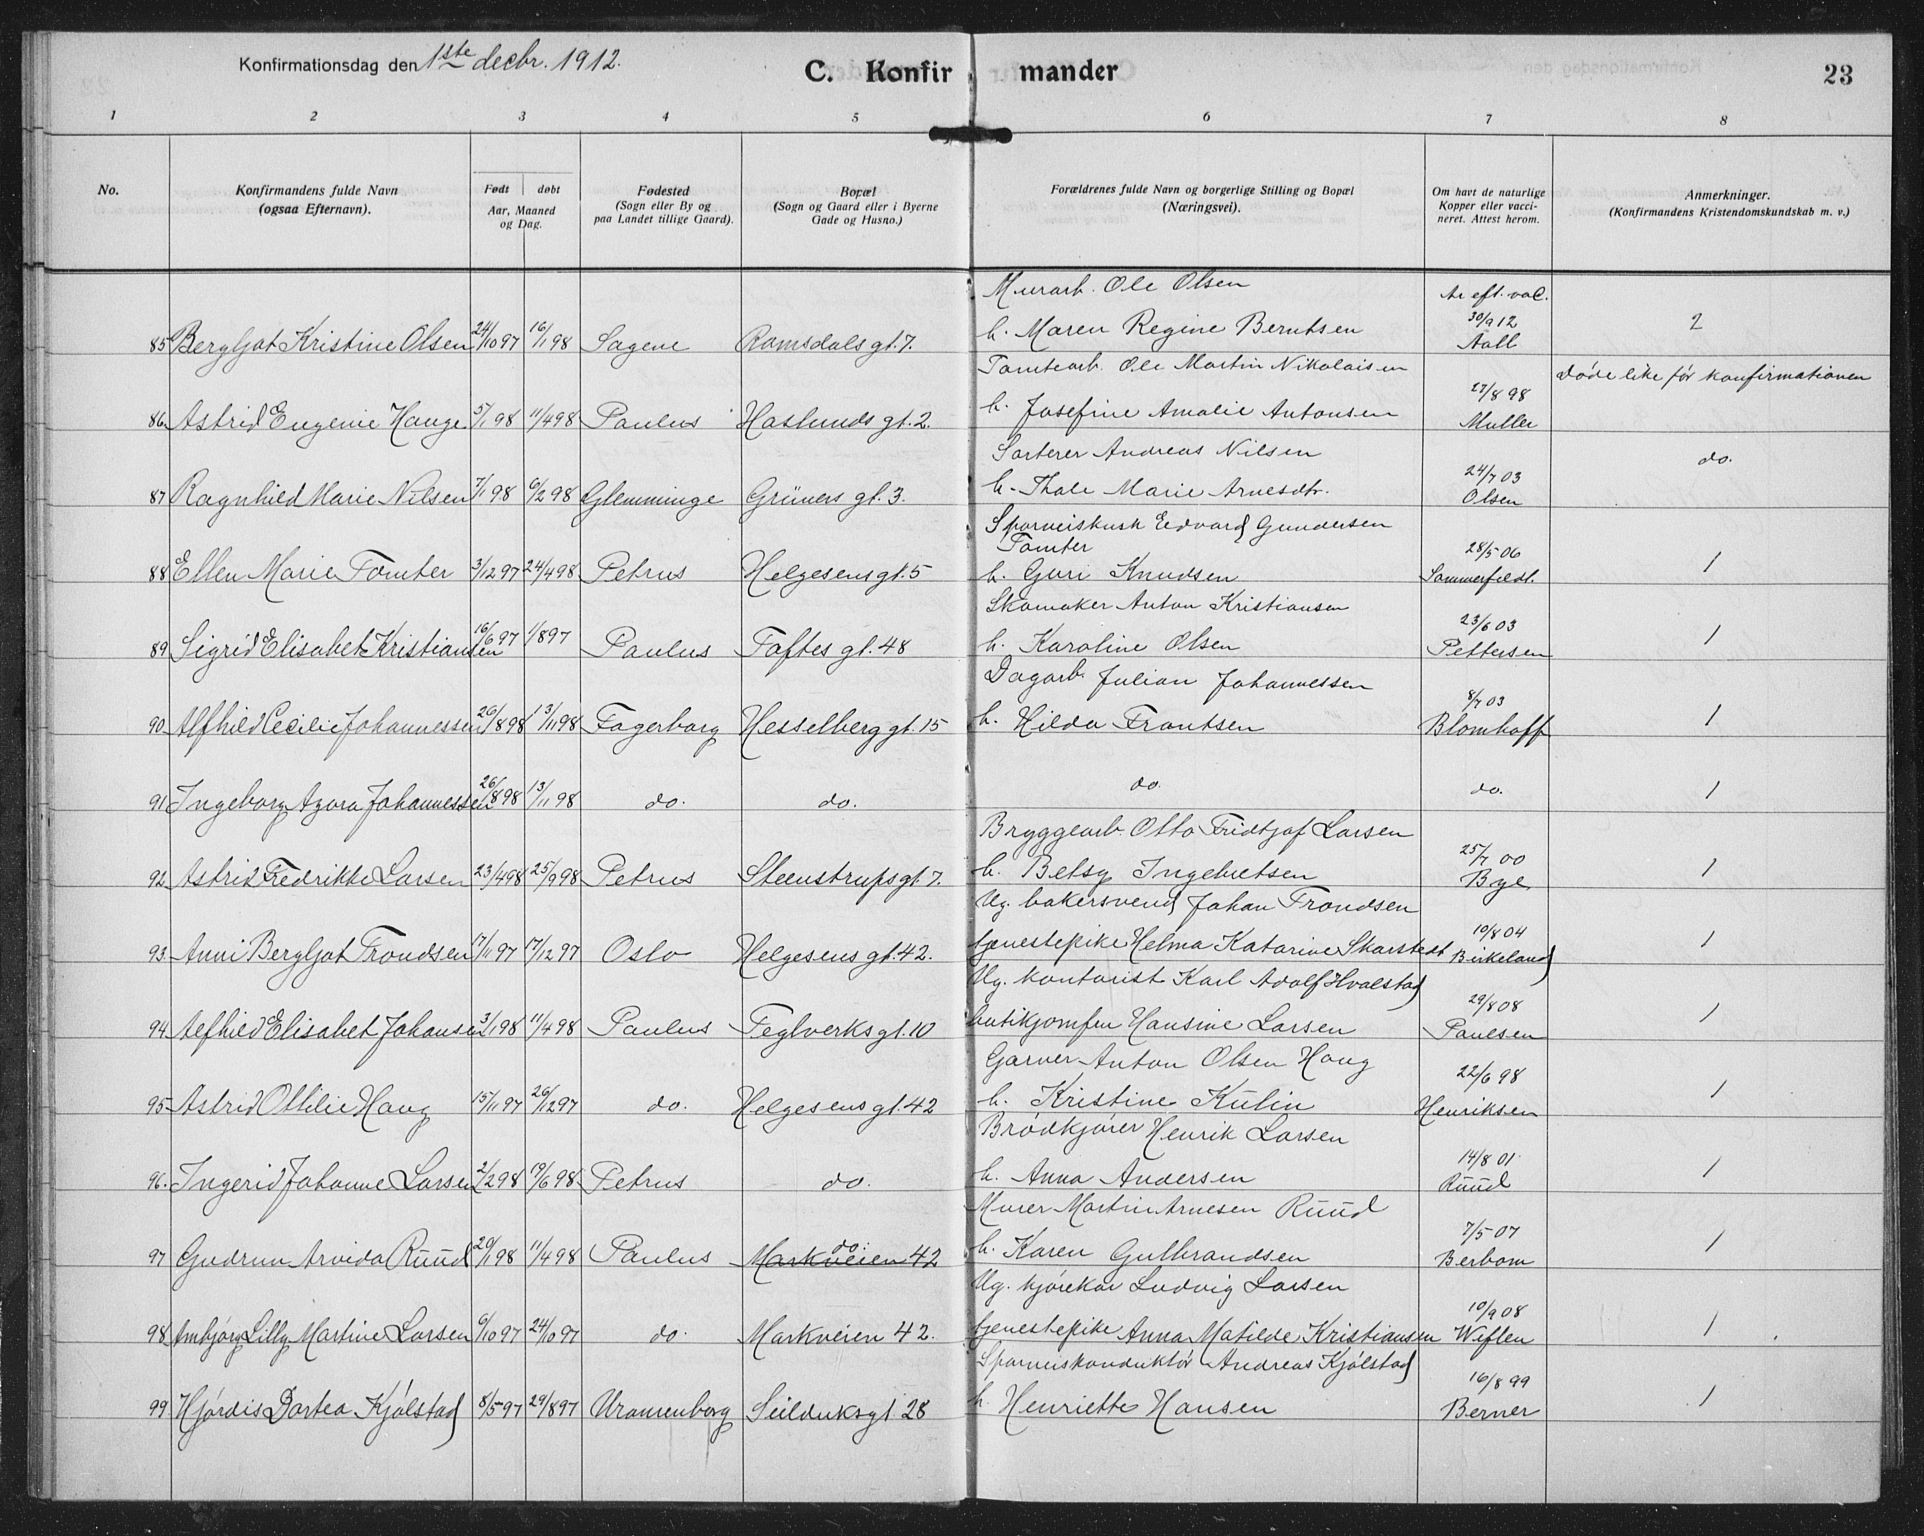 Konfirmationsdag den 1ste decbr. 1912.
C. Konfirmander
23
1 2 3 4 5 6 7 8
No.
Konfirmandens fulde Navn
(ogsaa Efternavn).
Født døbt
Aar, Maaned
og Dag.
Fødested
(Sogn eller By og
paa Landet tillige Gaard).
Bopæl
(Sogn og Gaard eller i Byerne
Gade og Husno.)
Forældrenes fulde Navn og borgerlige Stilling og Bopæl
(Næringsvei).
Om havt de naturlige
Kopper eller vacci-
neret. Attest herom.
Anmerkninger.
(Konfirmandens Kristendomskundskab m. v.)
Murarb. Ole Olsen
At. eft. vac.
85 Bergljot Kristine Olsen 24/10 97 16/1 98 Sagene Romsdals gt. 7. h. Maren Regine Berntsen 30/9 12 Aall 2
Tomtearb. Ole Martin Nikolaisen
Døde like før konfirmationen
86. Astrid Eugenie Hauge 5/1 98 11/4 98 Paulus Haslunds gt. 2. h. Josefine Amalie Antonsen 27/8 98 Muller
Sorterer Andreas Nilsen
do.
87 Ragnhild Marie Nilsen 7/1 98 6/2 98 Glemminge Grüners gt. 3. h. Thale Marie Arnesdtr. 24/7 03 Olsen
Sporveiskusk Edvard Gundersen
Tomter
88 Ellen Marie Tomter 3/12 97 24/4 98 Petrus Helgesens gt. 5 h. Guri Knudsen 28/5 06 Sommerfeldt. 1
Skomaker Anton Kristiansen
89 Sigrid Elisabet Kristiansen 16/6 97 1/8 97 Paulus Toftes gt. 48 h. Karoline Olsen 23/6 03 Pettersen 1
Dagarb. Julian Johannessen
90. Alfhild Cecilie Johannessen 26/8 98 13/11 98 Fagerborg Hesselberg gt. 15 h. Hilda Frantsen 8/7 03 Blomhoff 1
91 Ingeborg Agora Johannessen 26/8 98 13/11 98 do. do. do. do. 1
Bryggearb. Otto Fridtjof Larsen
92. Astrid Fredrikke Larsen 23/4 98 25/9 98 Petrus Steenstrups gt. 7. h. Betsy Ingebretsen 25/7 00 Bye 1
Ug. bakersvend Johan Trondsen
93. Anni Bergljot Trondsen 17/11 97 17/12 97 Oslo Helgesens gt. 42. tjenestepike Helma Katarine Skarstedt 19/8 04 Birkeland 1
Ug. kontorist Karl Adolf Hvalstad
94. Alfhild Elisabet Johansen 3/1 98 11/4 98 Paulus Teglverks gt. 10 butikjomfru Hansine Larsen 29/8 08 Paulsen 1
Garver Anton Olsen Haug
95. Astrid Ottilie Haug 15/11 97 26/12 97 do. Helgesens gt. 42 h. Kristine Kulin 22/6 98 Henriksen 1
Brødkjører Henrik Larsen
96. Ingerid Johanne Larsen 2/2 98 19/6 98 Petrus do. h. Anna Andersen 14/8 01 Ruud 1
Murer Martin Arnesen Ruud
97 Gudrun Arvida Ruud 20/1 98 11/4 98 Paulus Markveien 42 do. h. Karen Gulbrandsen 7/5 07 Berbom 1
Ug. kjørekar Ludvig Larsen
98. Ambjørg Lilly Martine Larsen 6/10 97 24/10 97 do. Markveien 42. tjenestepike Anna Matilde Kristiansen 10/9 08 Weflen 1
Sporveiskonduktør Andreas Kjølstad
99. Hjørdis Dortea Kjølstad 8/5 97 29/8 97 Uranienborg Seilduksgt 28 h. Henriette Hansen 16/8 99 Berner 1